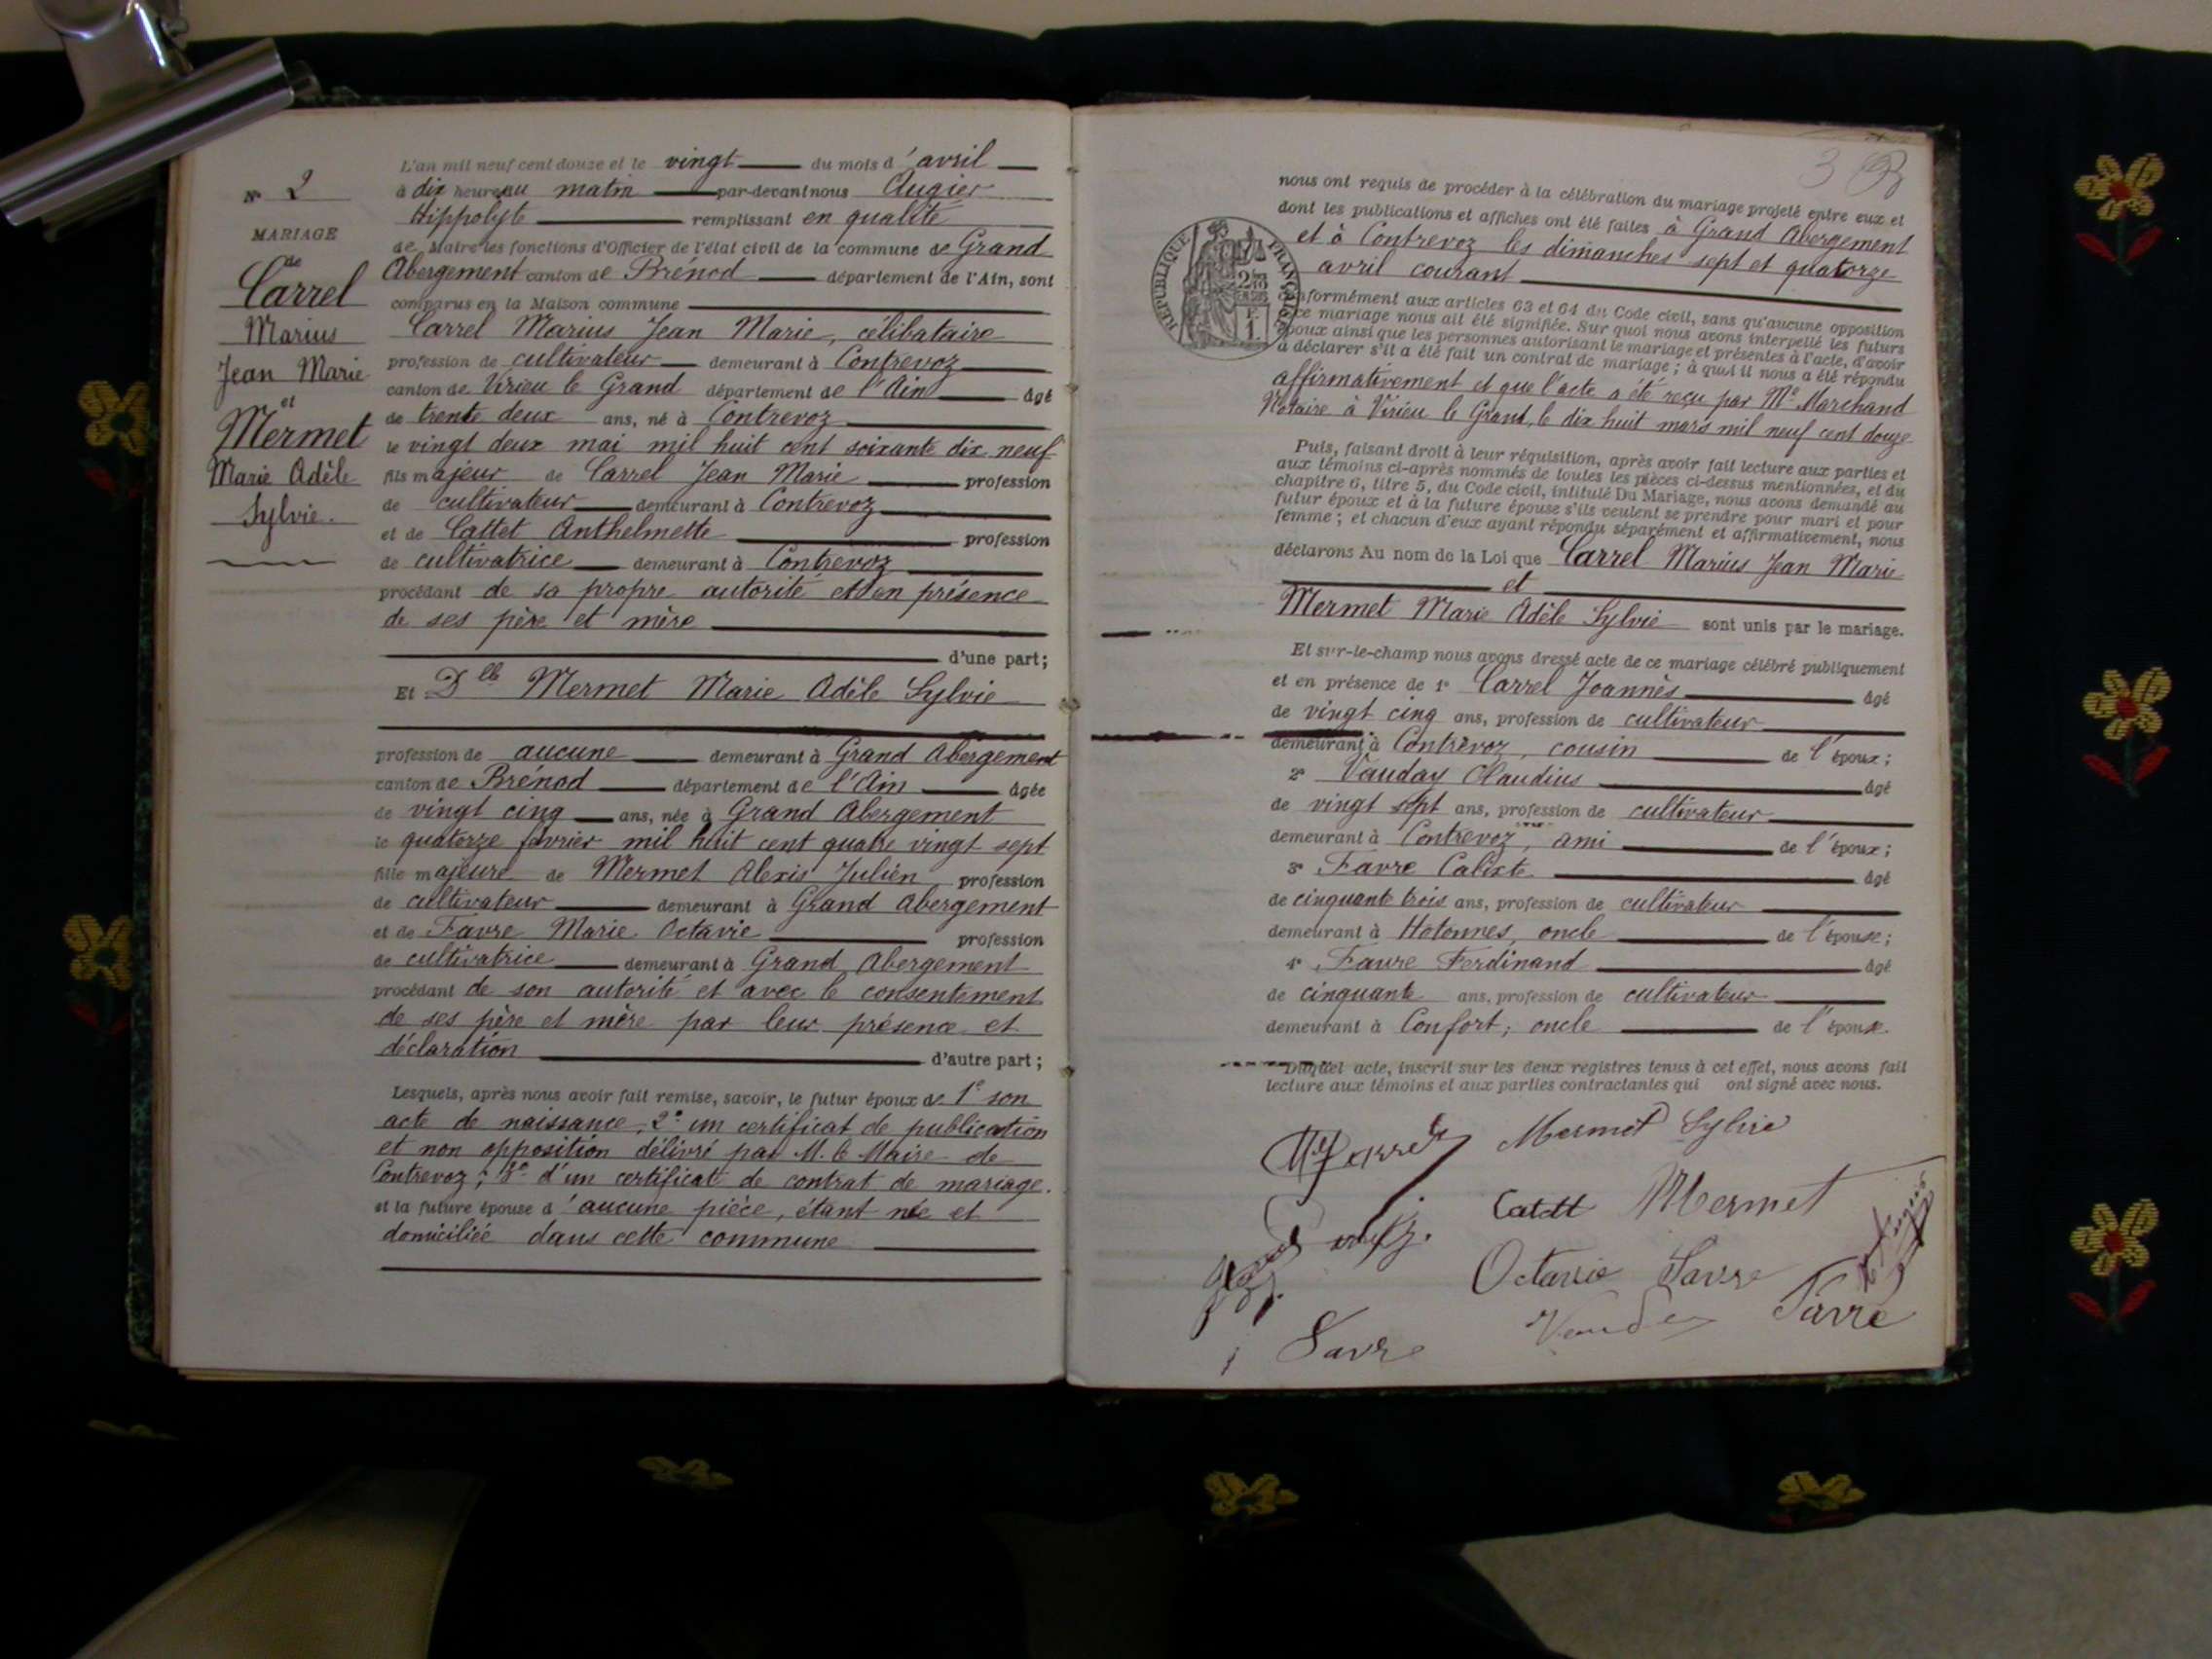 L'an mil neuf cent douze et le vingt du mois d'avril
N° 2
à dix heures du matin par-devant nous Augier
Hippolyte remplissant en qualité
MARIAGE
de Maire les fonctions d'Officier de l'état civil de la commune de Grand
de
Abergement canton de Brénod département de l'Ain, sont
Carrel
comparus en la Maison commune
Marius
Carrel Marius Jean Marie, célibataire
Jean Marie
profession de cultivateur demeurant à Contrevoz
canton de Virieu le Grand département de l'Ain âgé
et
de trente deux ans, né à Contrevoz
Mermet
le vingt deux mai mil huit cent soixante dix neuf
Marie Adèle
fils majeur de Carrel Jean Marie profession
Sylvie.
de cultivateur demeurant à Contrevoz
et de Cattet Anthelmette profession
de cultivatrice demeurant à Contrevoz
procédant de sa propre autorité et en présence
de ses père et mère
d'une part;
Et Dlle Mermet Marie Adèle Sylvie
profession de aucune demeurant à Grand Abergement
canton de Brénod département de l'Ain âgée
de vingt cinq ans, née à Grand Abergement
le quatorze février mil huit cent quatre vingt sept
fille majeure de Mermet Alexis Julien profession
de cultivateur demeurant à Grand Abergement
et de Favre Marie Octavie profession
de cultivatrice demeurant à Grand Abergement
procédant de son autorité et avec le consentement
de ses père et mère par leur présence et
déclaration d'autre part;
Lesquels, après nous avoir fait remise, savoir, le futur époux de 1° son
acte de naissance, 2° un certificat de publication
et non opposition délivré par M. le Maire de
Contrevoz; 3° d'un certificat de contrat de mariage.
et la future épouse d'aucune pièce, étant née et
domiciliée dans cette commune
3
nous ont requis de procéder à la célébration du mariage projeté entre eux et
dont les publications et affiches ont été faites à Grand Abergement
et à Contrevoz les dimanches sept et quatorze
avril courant
RÉPUBLIQUE FRANÇAISE
conformément aux articles 63 et 64 du Code civil, sans qu'aucune opposition
ce mariage nous ait été signifiée. Sur quoi nous avons interpellé les futurs
époux ainsi que les personnes autorisant le mariage et présentes à l'acte, d'avoir
à déclarer s'il a été fait un contrat de mariage; à quoi il nous a été répondu
affirmativement et que l'acte a été reçu par Me Marchand
Notaire à Virieu le Grand, le dix huit mars mil neuf cent douze
Puis, faisant droit à leur réquisition, après avoir fait lecture aux parties et
aux témoins ci-après nommés de toutes les pièces ci-dessus mentionnées, et du
chapitre 6, titre 5, du Code civil, intitulé Du Mariage, nous avons demandé au
futur époux et à la future épouse s'ils veulent se prendre pour mari et pour
femme; et chacun d'eux ayant répondu séparément et affirmativement, nous
déclarons Au nom de la Loi que Carrel Marius Jean Marie
et
Mermet Marie Adèle Sylvie sont unis par le mariage.
Et sur-le-champ nous avons dressé acte de ce mariage célébré publiquement
et en présence de 1° Carrel Joannès âgé
de vingt cinq ans, profession de cultivateur
demeurant à Contrevoz, cousin de l'époux;
2° Vauday Claudius âgé
de vingt sept ans, profession de cultivateur
demeurant à Contrevoz, ami de l'époux;
3° Favre Calixte âgé
de cinquante trois ans, profession de cultivateur
demeurant à Hotonnes, oncle de l'épouse;
4° Favre Ferdinand âgé
de cinquante ans, profession de cultivateur
demeurant à Confort, oncle de l'épouse.
Duquel acte, inscrit sur les deux registres tenus à cet effet, nous avons fait
lecture aux témoins et aux parties contractantes qui ont signé avec nous.
Mermet Sylvie
Catett Mermet
Octavie Favre
Favre
Favre